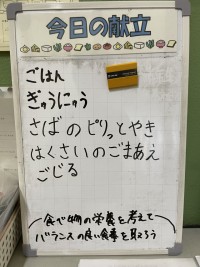 今日の献立
ごはん
ぎゅうにゅう
さばのピリっとやき
はくさいのごまあえ
ごじる
食べ物の栄養を考えて
バランスの良い食事を取ろう